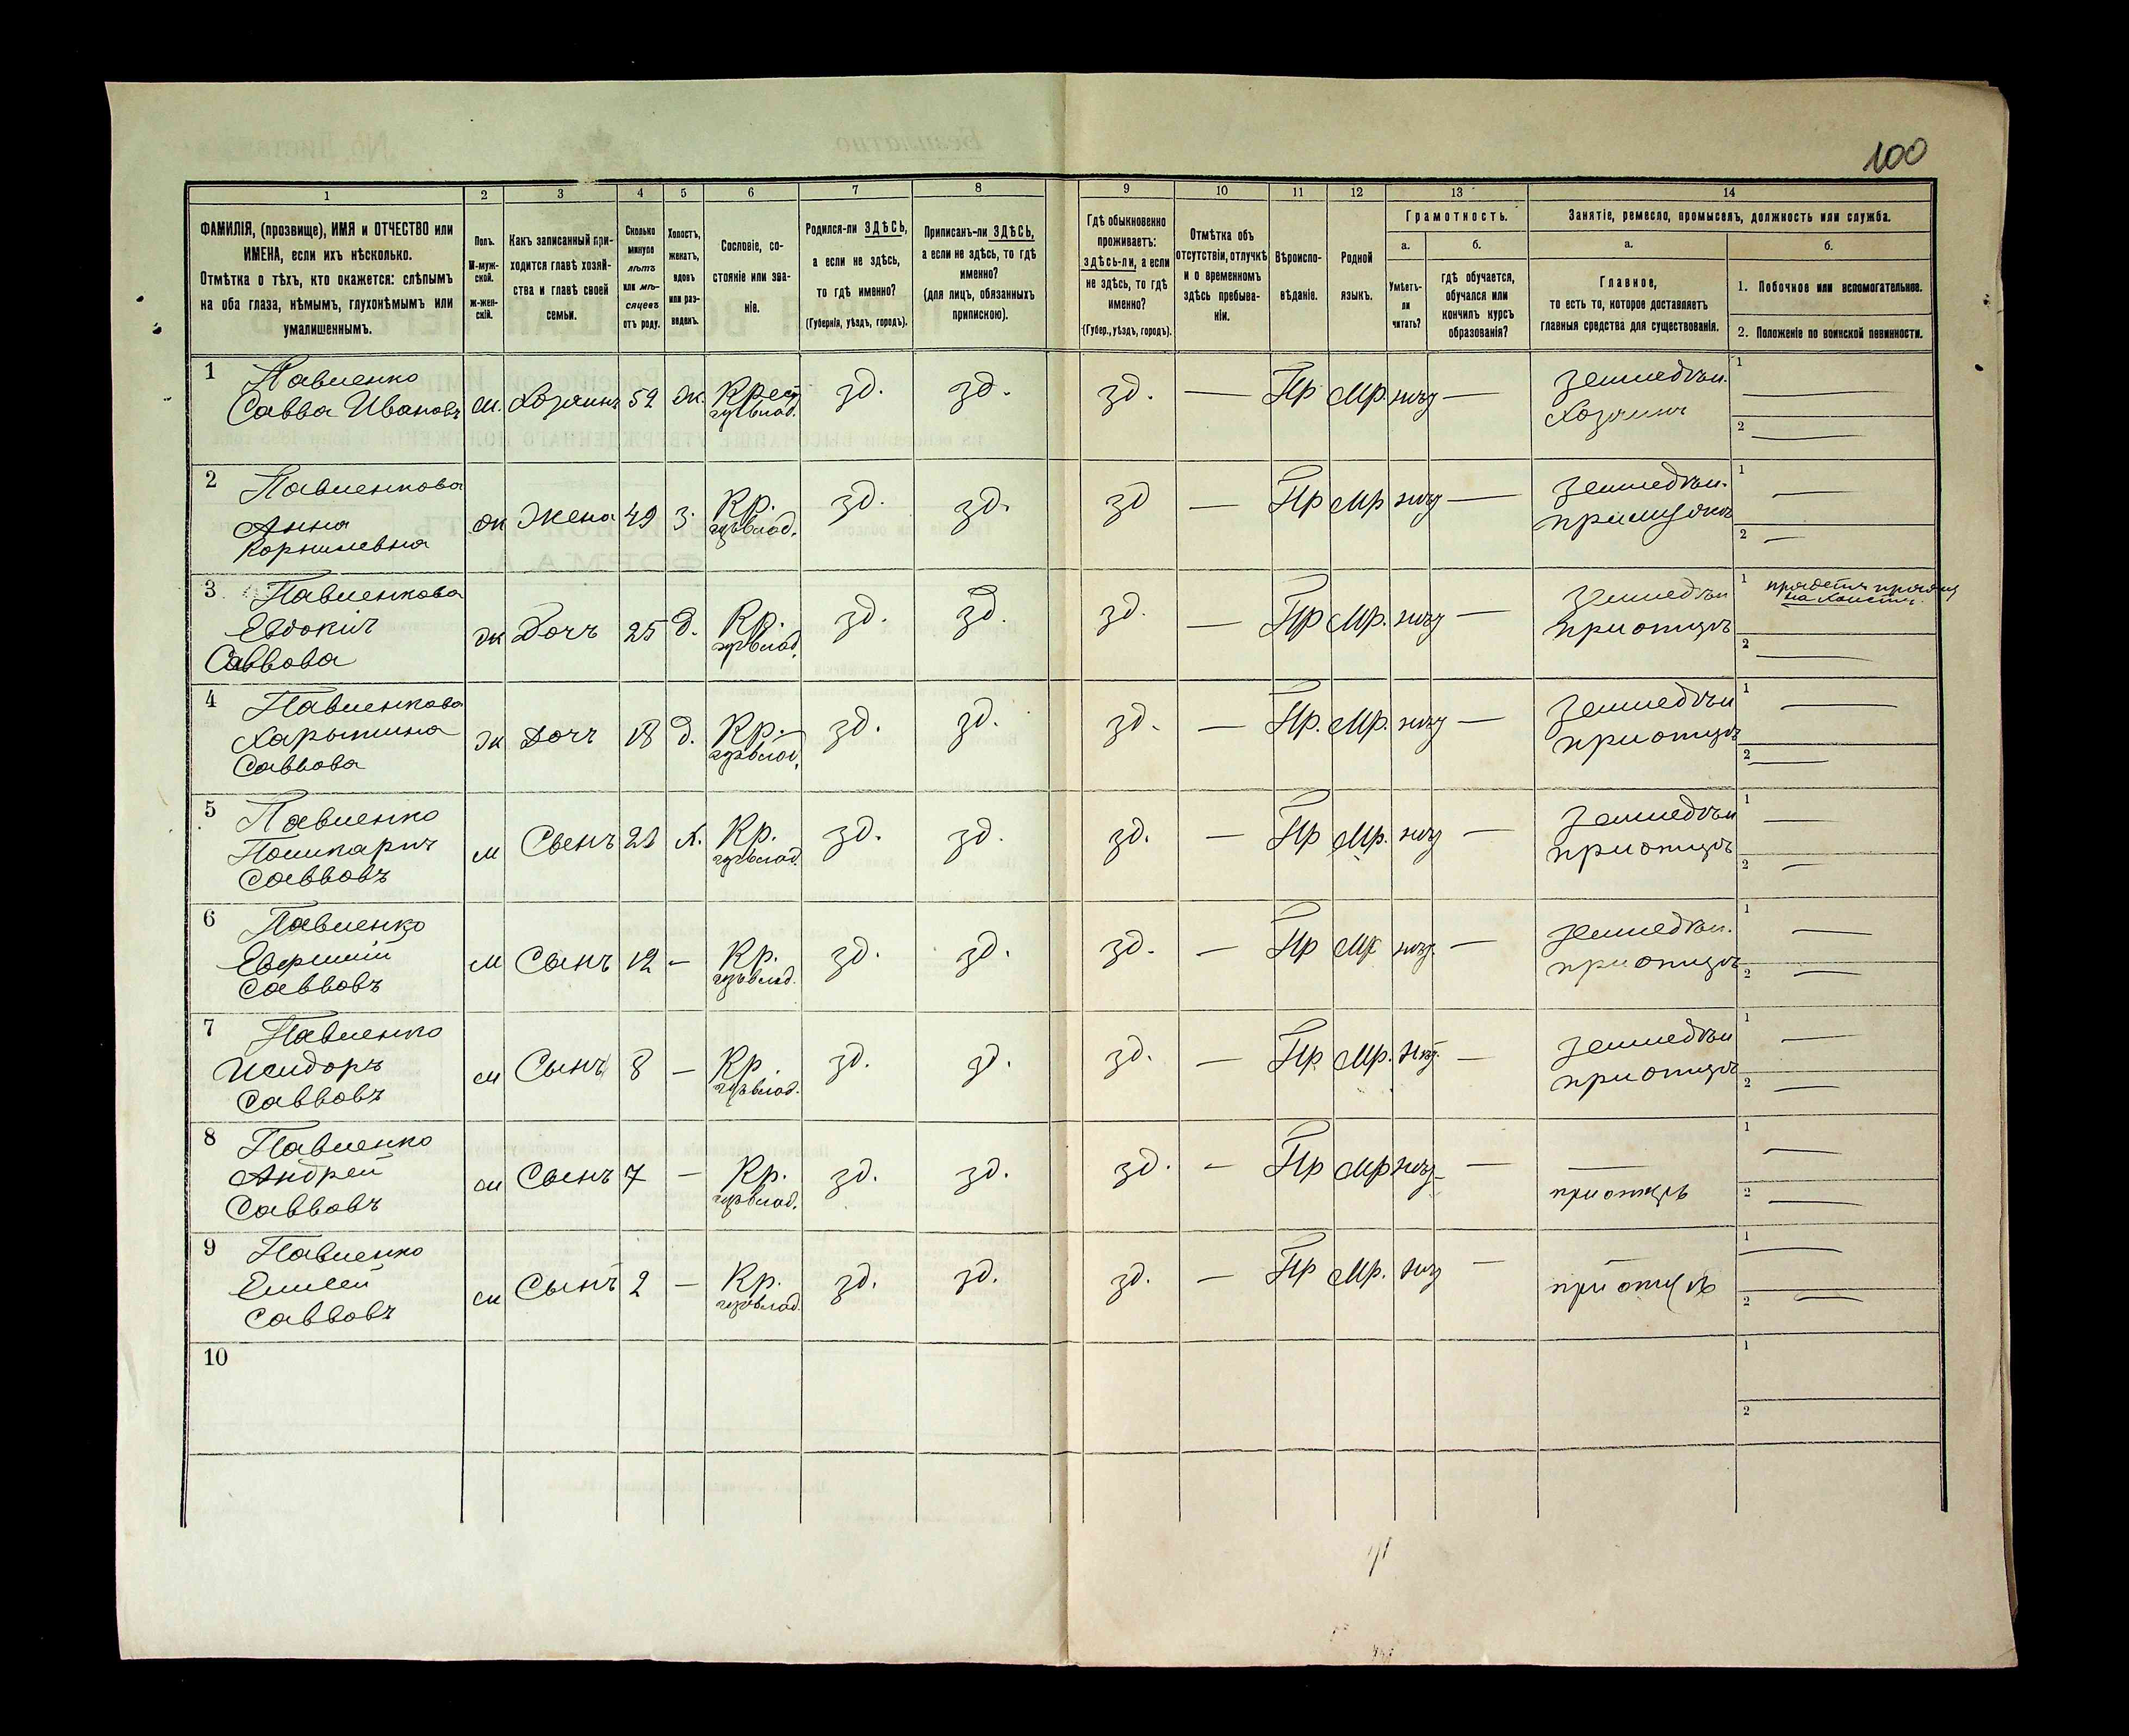 100
1 2 3 4 5 6 7 8 9 10 11 12 13 14
ФАМИЛІЯ, (прозвище), ИМЯ и ОТЧЕСТВО или
ИМЕНА, если ихъ нѣсколько.
Отмѣтка о тѣхъ, кто окажется: слѣпымъ
на оба глаза, нѣмымъ, глухонѣмымъ или
умалишеннымъ.
Полъ.
М-муж-
ской.
Ж-жен-
скій.
Какъ записанный при-
ходится главѣ хозяй-
ства и главѣ своей
семьи.
Сколько
минуло
лѣтъ
или мѣ-
сяцевъ
отъ роду.
Холостъ,
женатъ,
вдовъ
или раз-
веденъ.
Сословіе, со-
стояніе или зва-
ніе.
Родился-ли ЗДѢСЬ,
а если не здѣсь,
то гдѣ именно?
(Губернія, уѣздъ, городъ).
Приписанъ-ли ЗДѢСЬ,
а если не здѣсь, то гдѣ
именно?
(для лицъ, обязанныхъ
припискою).
Гдѣ обыкновенно
проживаетъ:
здѣсь-ли, а если
не здѣсь, то гдѣ
именно?
(Губер., уѣздъ, городъ).
Отмѣтка объ
отсутствіи, отлучкѣ
и о временномъ
здѣсь пребыва-
ніи.
Вѣроиспо-
вѣданіе.
Родной
языкъ.
Грамотность.
а.
Умѣетъ-
ли
читать?
б.
гдѣ обучается,
обучался или
кончилъ курсъ
образованія?
Занятіе, ремесло, промыселъ, должность или служба.
а.
Главное,
то есть то, которое доставляетъ
главныя средства для существованія.
б.
1. Побочное или вспомогательное.
2. Положеніе по воинской повинности.
1 Павленко
Савва Ивановъ м. Хозяинъ 52 ж. Крес зд. зд. зд. — Пр Мр. —
земледѣл.
Хозяинъ
1 —
2 —
2 Павленкова
Анна
Корнилевна жк Жена 49 з. Кр. зд. зд. зд — Пр Мр —
земледѣл.
1 —
2 —
3 Павленкова
Евдокія
Саввова жк Дочь 25 д. Кр. зд. зд. зд. — Пр Мр. —
земледѣл
при отцѣ
1
2 —
4 Павленкова
Харытина
Саввова жк Дочь 18 д. Кр. зд. зд. зд. — Пр. Мр. —
земледѣл
при отцѣ
1 —
2 —
5 Павленко
Поликарпъ
Саввовъ м Сынъ 21 х. Кр. зд. зд. зд. — Пр Мр. —
земледѣл
при отцѣ
1 —
2 —
6 Павленко
Саввовъ м Сынъ 12 — Кр. зд. зд. зд. — Пр Мр —
земледѣл.
при отцѣ
1 —
2 —
7 Павленко
Исидоръ
Саввовъ м Сынъ 8 — Кр. зд. зд. зд. — Пр Мр. —
земледѣл
при отцѣ
1 —
2 —
8 Павленко
Андрей
Саввовъ м Сынъ 7 — Кр. зд. зд. зд. — Пр Мр —
—
при отцѣ
1 —
2 —
9 Павленко
Саввовъ м Сынъ 2 — Кр. зд. зд. зд. — Пр Мр. —
—
при отцѣ
1 —
2 —
10
1
2